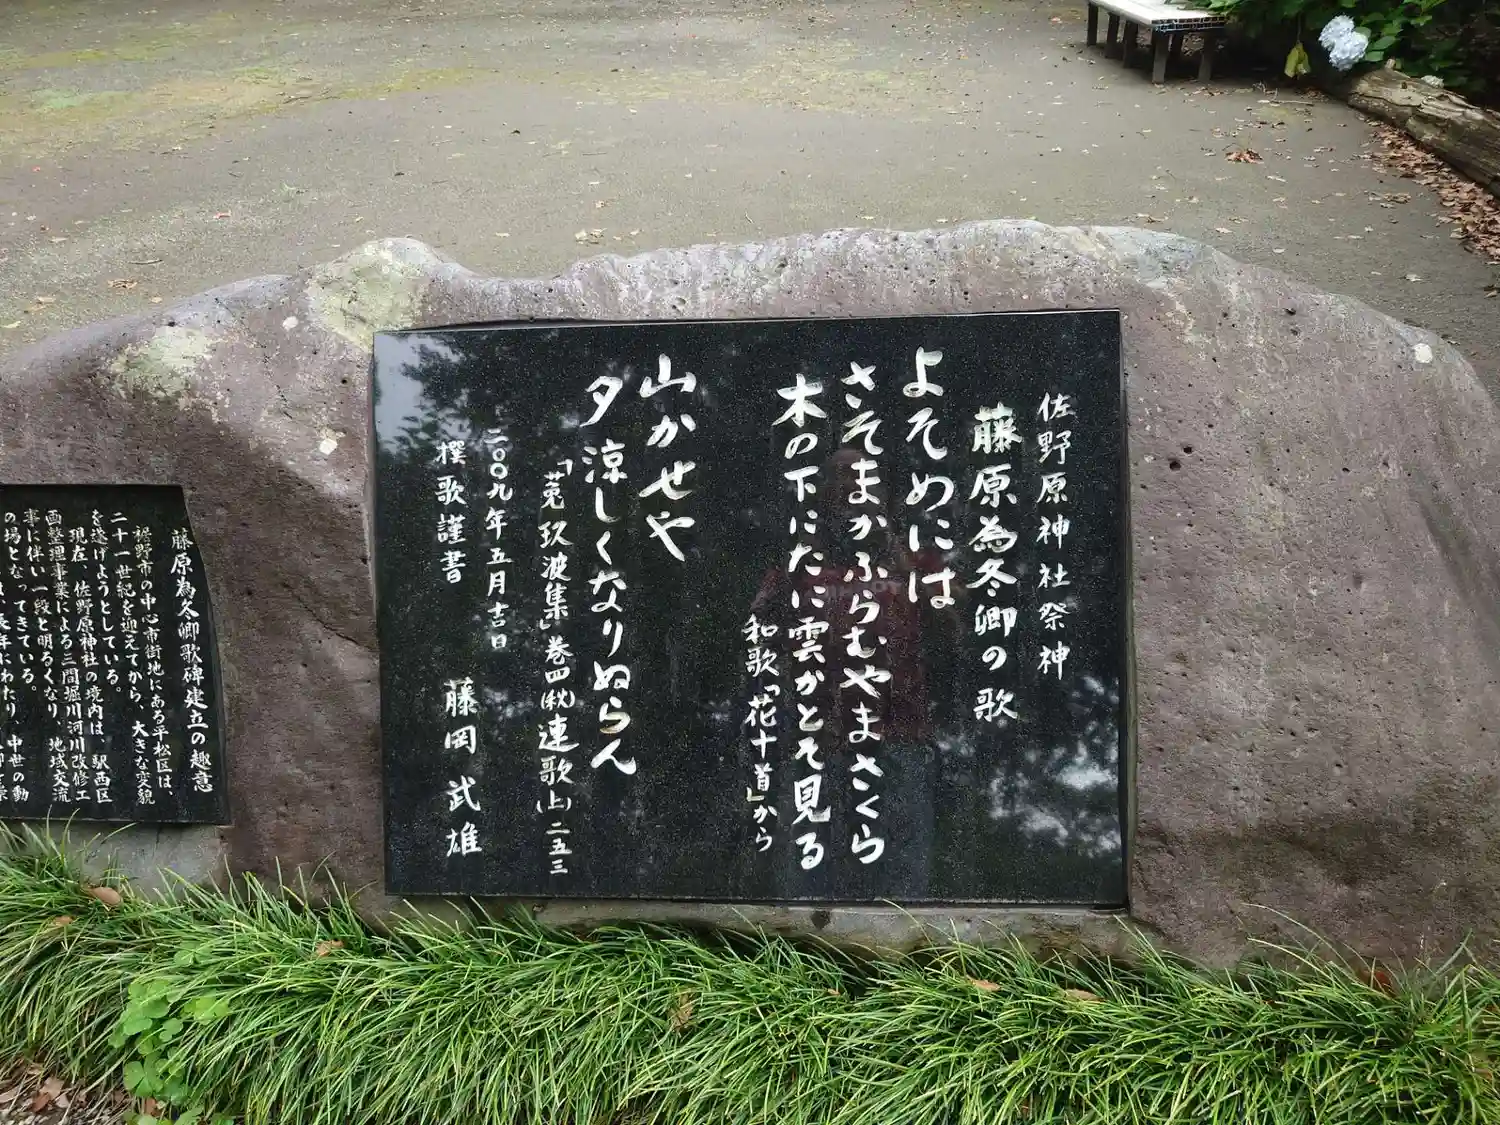 佐野原神社祭神
藤原為冬卿の歌
よそめには
さそまかふらむやまさくら
木の下にたに雲かとそ見る
和歌「花十首」から
山かせや
夕涼しくなりぬらん
「菟玖波集」巻四(秋)連歌(上)二五三
二〇〇九年五月吉日
撰歌謹書 藤岡武雄
藤原為冬卿歌碑建立の趣意
裾野市の中心市街地にある平松区は、
二十一世紀を迎えてから、大きな変貌
を遂げようとしている。
現在、佐野原神社の境内は、駅西区
画整理事業による三間堀川河川改修工
事に伴い一段と明るくなり、地域交流
の場となってきている。